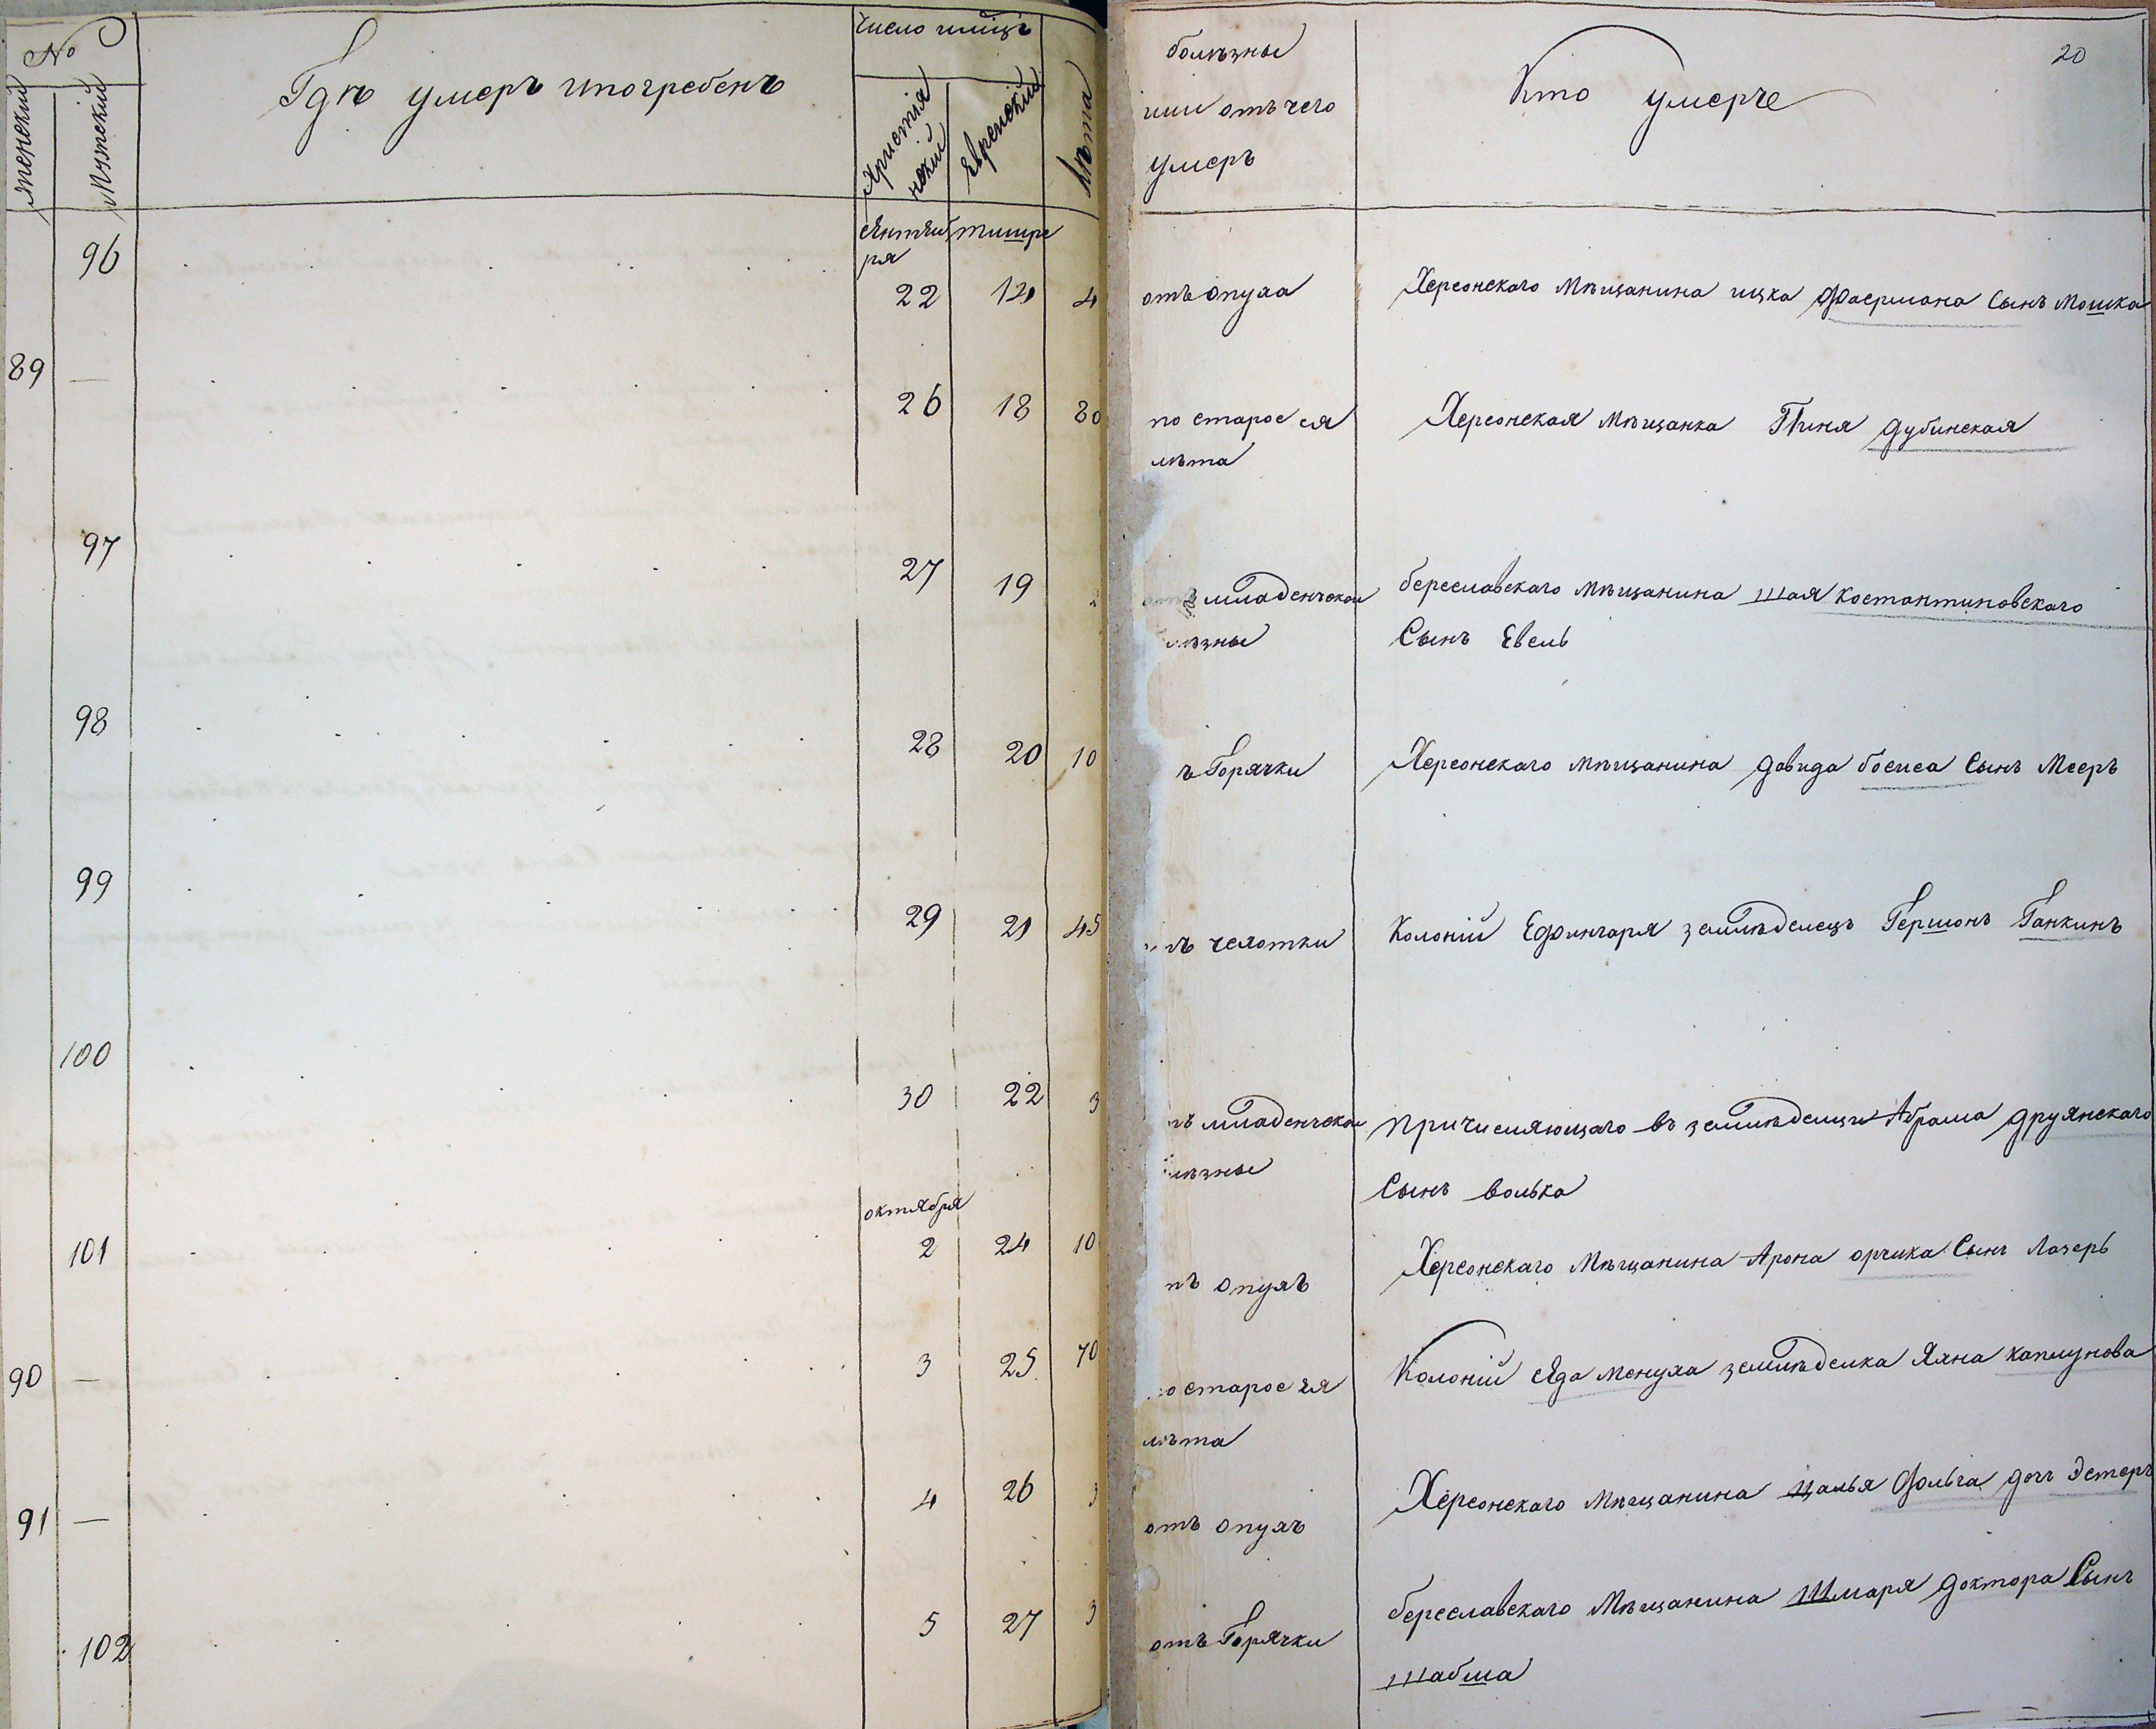 №
женский
Мужеский
Гдѣ умеръ ипогребенъ
число имѣцъ
Христія
нский
Еврейский
Лѣта
болѣзны
или отъ чего
умеръ
Кто умерче
20
сентяб
ря
тишре
96 22 14 4 отъ опуха Херсонскаго мѣщанина ицка Фаермана Сынъ Мошка
89 — 26 18 80 по старосся Херсонская мѣщанка Пиня дубинская
лѣта
97 27 19 младенческои береславскаго мѣщанина шая костантиновскаго
Сынъ Евель
98 28 20 10 ъ Горячки Херсонскаго мѣщанина давида босиса Сынъ Мееръ
99 29 21 45 чехотки Колоній Ефингаря землѣделецъ Гершонъ Ганкинъ
100 30 22 3 младенческои причисляющаго въ землѣделцы Абрама друянскаго
Сынъ волька
октября
101 2 24 10 опухъ Херсонскаго Мѣщанина Арона орчика Сынъ Лазерь
90 — 3 25 70 старосся Колоній сяда менуха землѣделка Хана каплунова
лѣта
91 — 4 26 3 отъ опухъ Херсонскаго Мѣщанина цалья Фольга дочъ Эстеръ
102 5 27 3 отъ Горячки береславскаго Мѣщанина Шмаря доктора Сынъ
шабша